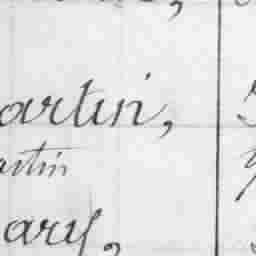 artin,
artin
ary,